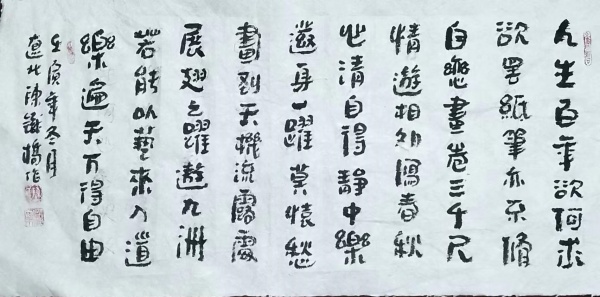 人生百年欲何求
欲罢紙筆亦脩
自戀畫卷三千尺
情遊相知春秋
清自得靜中樂
身一躍莫懷愁
畫到天機流露處
展翅之躍遨九洲
若能以藝來入道
樂遍天下得自由
壬寅年冬月
遼北陳作